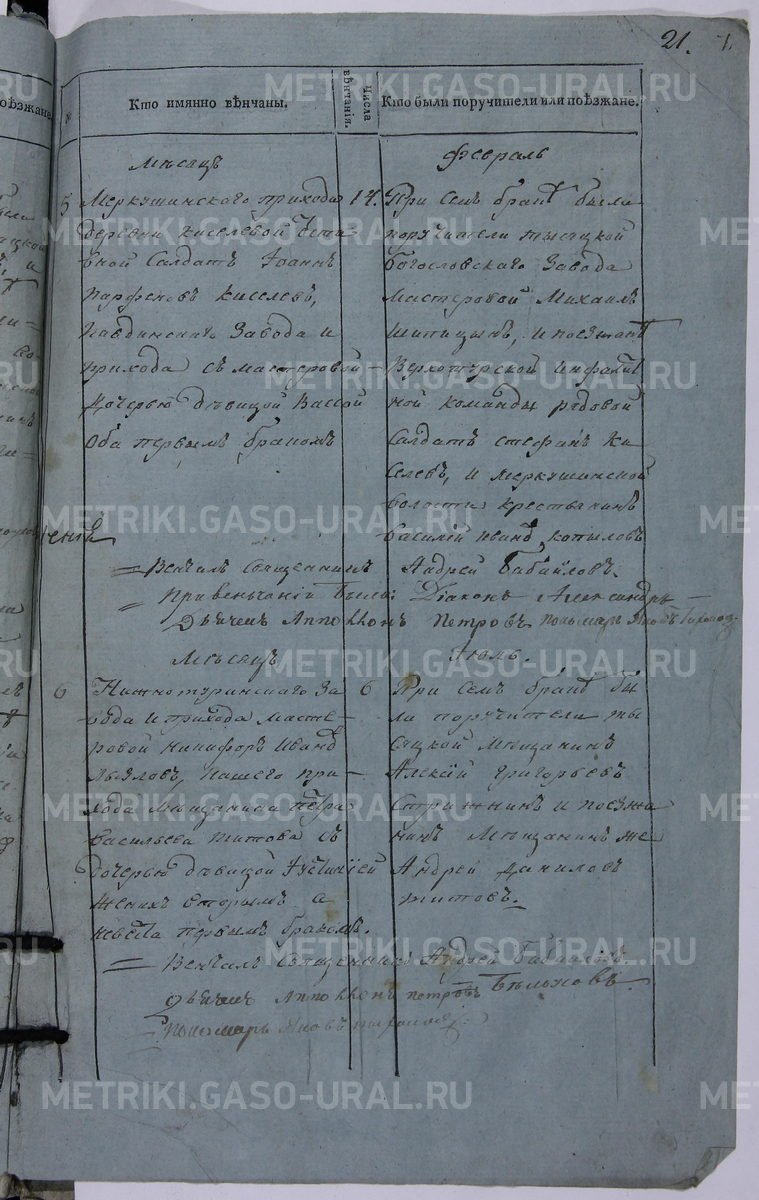 21.
№ Кто имянно вѣнчаны. Числа вѣнчанія. Кто были поручители или поѣзжане.
Мѣсяцъ Февраль
5 Меркушинскаго прихода 14. При семъ бракѣ были
деревни Киселевой
салдатъ Іоаннъ
Парфеновъ Киселевъ,
Павдинскаго Завода и
прихода съ мастеровой
дочерью дѣвицой Вассой
Оба первымъ бракомъ
поручители тысяцкой
Богословскаго Завода
мастеровой Михаилъ
Шипицынъ, и поезжанѣ
Верхотурской инфалид
ной команды рядовой
Салдатъ Стефанъ Ки
селевъ, и Меркушинской
волости крестьянинъ
Василій Ивановъ Копыловъ
Венчалъ Священникъ Андрей Бабайловъ.
При венчаніи были: Діаконъ Александръ
Дьячекъ Апполлонъ Петровъ пономарь Яковъ
Мѣсяцъ Іюль.
6 Нижнотуринскаго За 6 При семъ бракѣ бы
вода и прихода масте
ровой Никифоръ Ивановъ
нашего при
хода мѣщанина Петра
Васильева Титова съ
дочерью дѣвицой Іустиніей
Женихъ вторымъ а
невѣста первымъ бракомъ.
ли поручители ты
сяцкой мѣщанинъ
Алексій Григорьевъ
Стрижкинъ и поезжа
нинъ мѣщанинъ же
Андрей Даниловъ
Титовъ.
Венчалъ Священникъ Андрей Бабайловъ.
Дьячекъ Апполлонъ Петровъ Бѣльковъ.
Пономарь Яковъ
METRIKI.GASO-URAL.RU